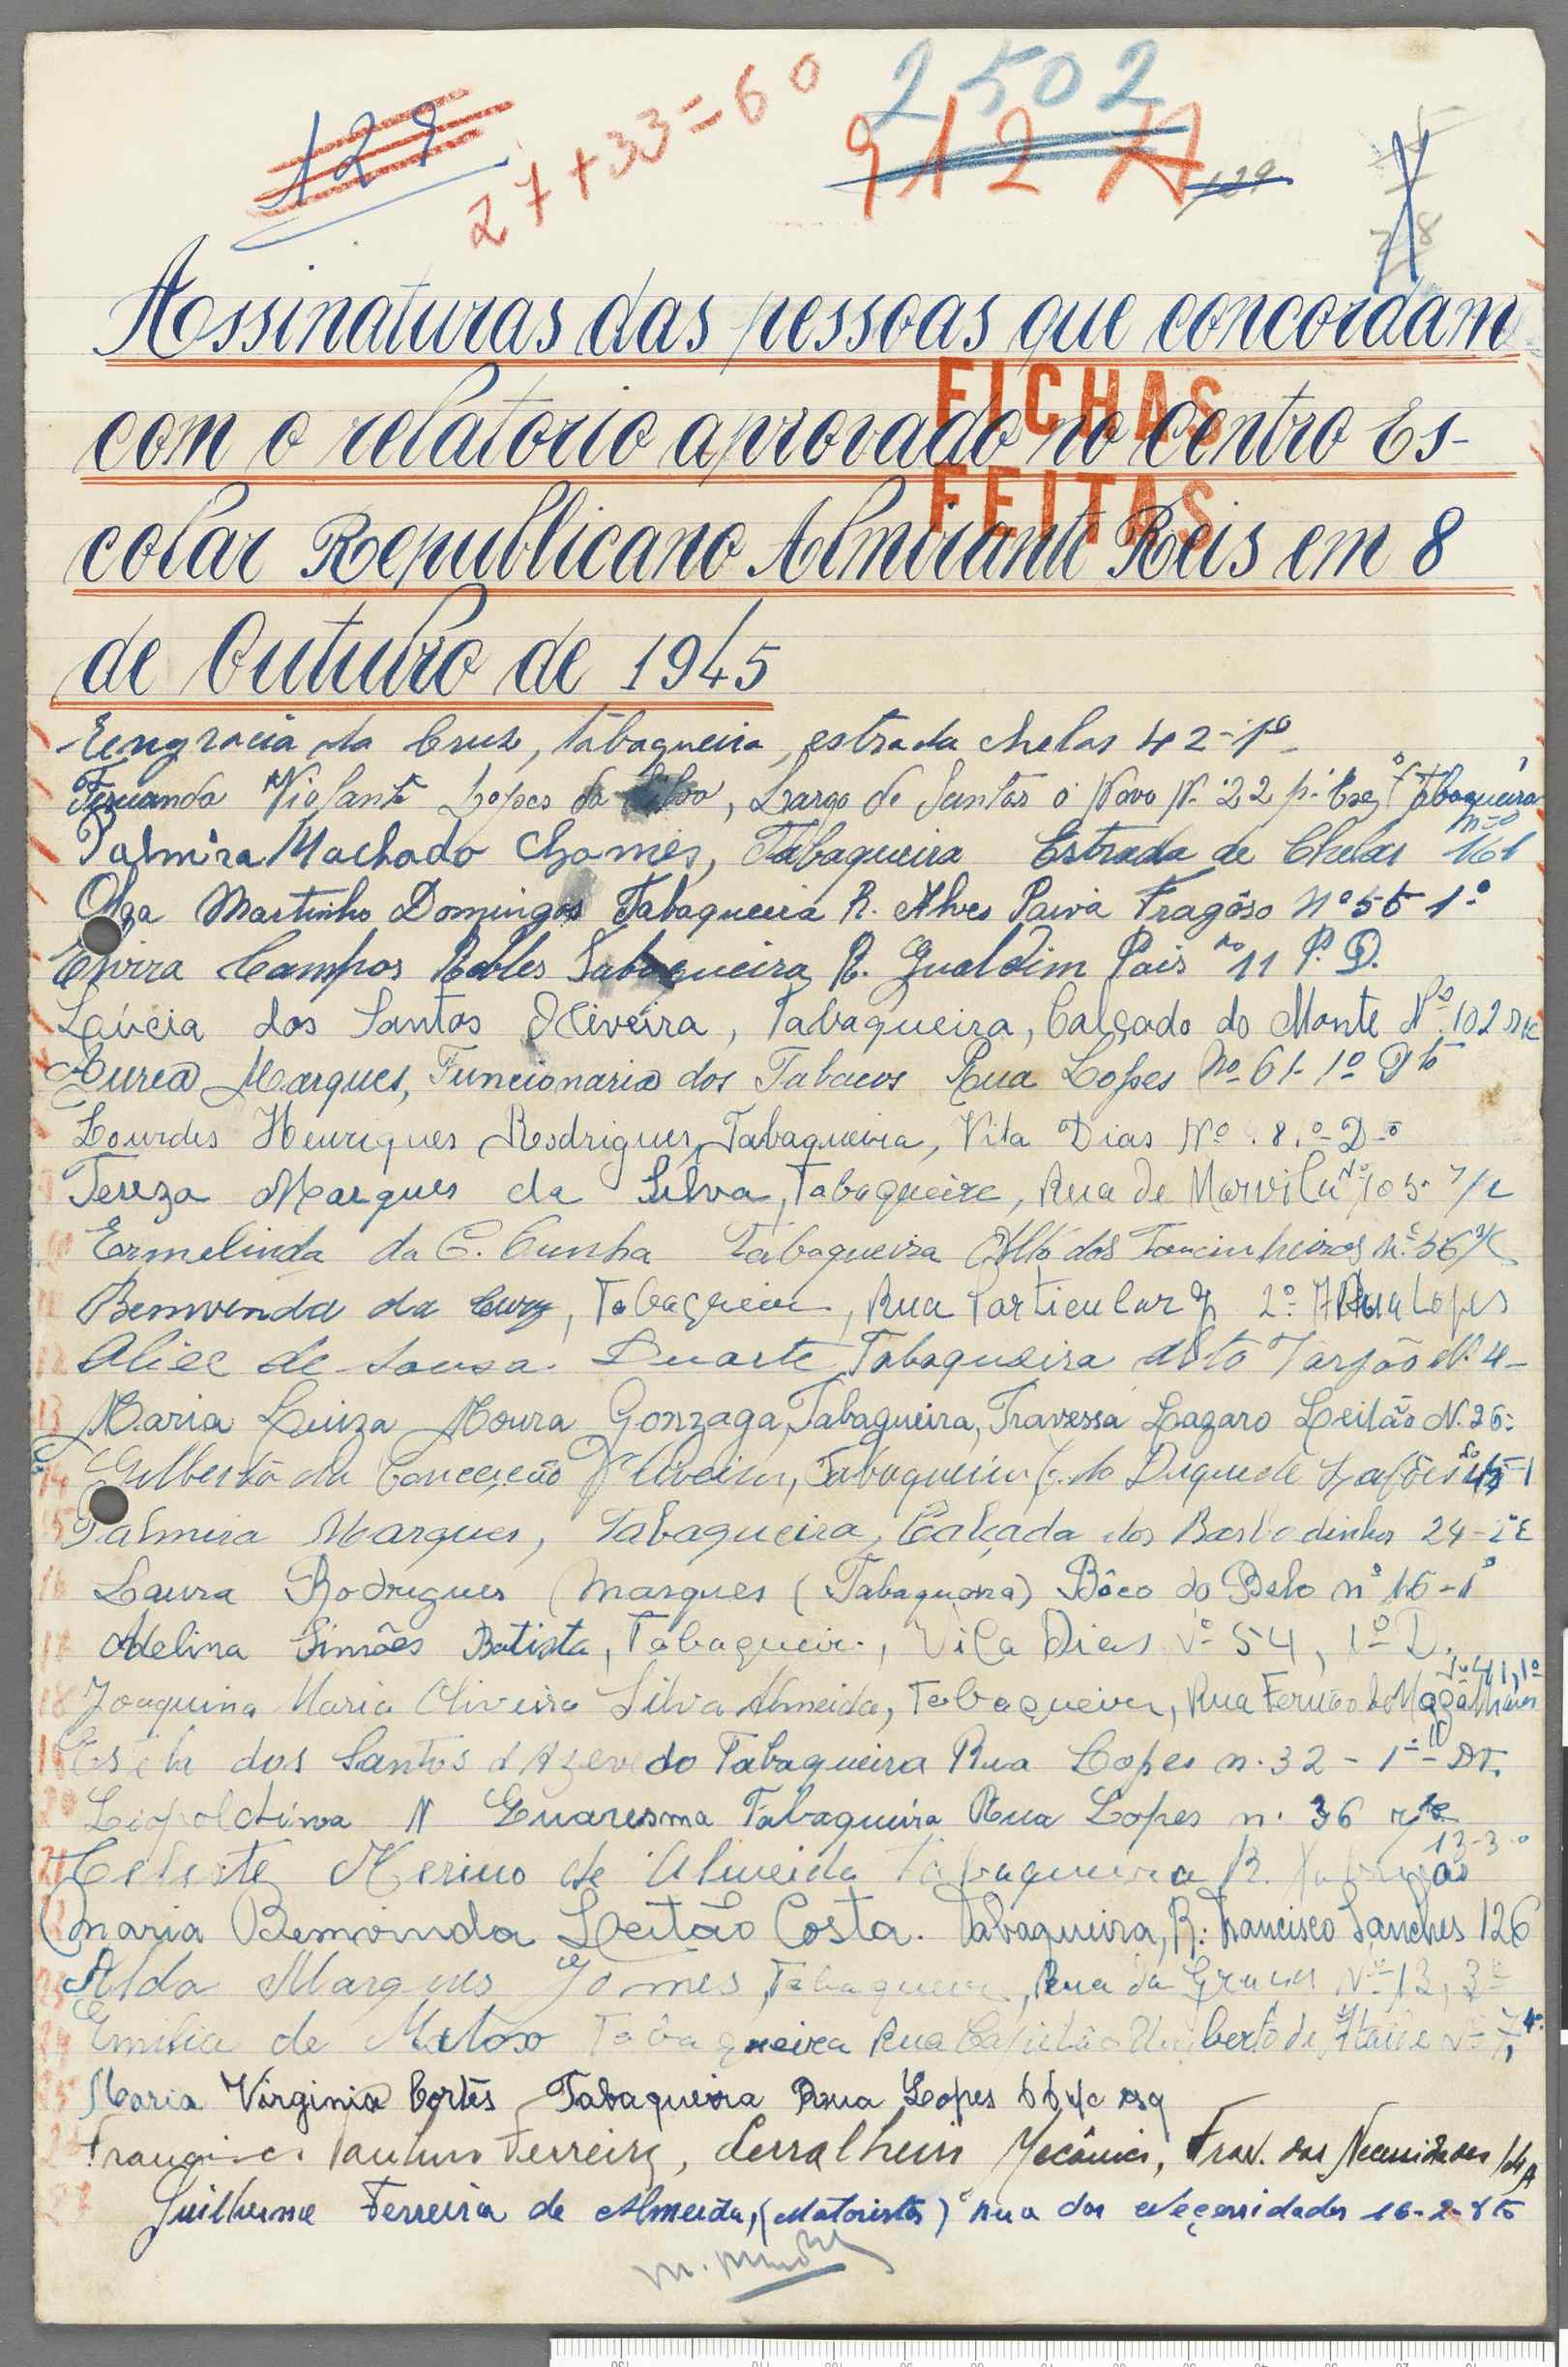 129
27+33=60
2502
912
129
Assinaturas das pessoas que concordam
com o relatorio aprovado no Centro Es-
colar Republicano Almirante Reis em 8
de Outubro de 1945
FICHAS
FEITAS
Engracia da Cruz, tabaqueira, estrada chelas 42-1º
Fernanda Violante Lopes da Silva, Largo de Santos o Novo Nº 22 Tabaqueira
Palmira Machado Gomes, Tabaqueira Estrada de Chelas 161
Olga Martinho Domingos Tabaqueira R. Alves Paiva Fragôso Nº 55 1º
Elvira Campos Robles Tabaqueira R. Gualdim Pais nº 11 P. D.
Lúcia dos Santos Oliveira, Tabaqueira, Calçado do Monte Nº 102
Aurea Marques, Funcionaria dos Tabacos Rua Lopes Nº 61-1º Dto
Lourdes Henriques Rodrigues, Tabaqueira, Vila Dias Nº 8
Tereza Marques da Silva, Tabaqueira, Rua de Marvila Nº 105
10 Ermelinda da C. Cunha Tabaqueira Alto dos Toucinheiros nº 56
11 Benvenda da Cruz, Tabaqueira, Rua Particular 2º Rua Lopes
12 Alice de Sousa Duarte Tabaqueira Alto Varjão Nº 4
13 Maria Luiza Moura Gonzaga, Tabaqueira, Travessa Lazaro Leitão N. 26
14 da Conceição Oliveira, Tabaqueira Duque de Lafões
15 Palmira Marques, Tabaqueira, Calçada dos Barbadinhos 24
16 Laura Rodrigues Marques (Tabaqueira) Bêco do Belo nº 16-1º
Adelina Simões Batista, Tabaqueir., Vila Dias Nº 54, 1º D.
18 Joaquina Maria Oliveira Silva Almeida, Tabaqueira, Rua Fernão de Magalhães
19 dos Santos d'Azevedo Tabaqueira Rua Lopes n. 32 - 1º DT.
20 Leopoldina N Quaresma Tabaqueira Rua Lopes n. 36
21 Celeste Merino de Almeida Tabaqueira R. 13-3º
Maria Bemvinda Leitão Costa. Tabaqueira, R. Francisco Sanches 126
23 Alda Marques Gomes, Tabaqueira, Rua da Graça Nº 13, 3º
24 Emilia de Matos Tabaqueira Rua Capitão Humberto de Ataíde Nº 7,
25 Maria Virginia Cortês Tabaqueira Rua Lopes esq
Paulino Ferreira, Serralheiro Mecânico, Trav. das Necessidades
27 Guilherme Ferreira de Almeida, (Motorista) Rua das Necessidades 16-2-